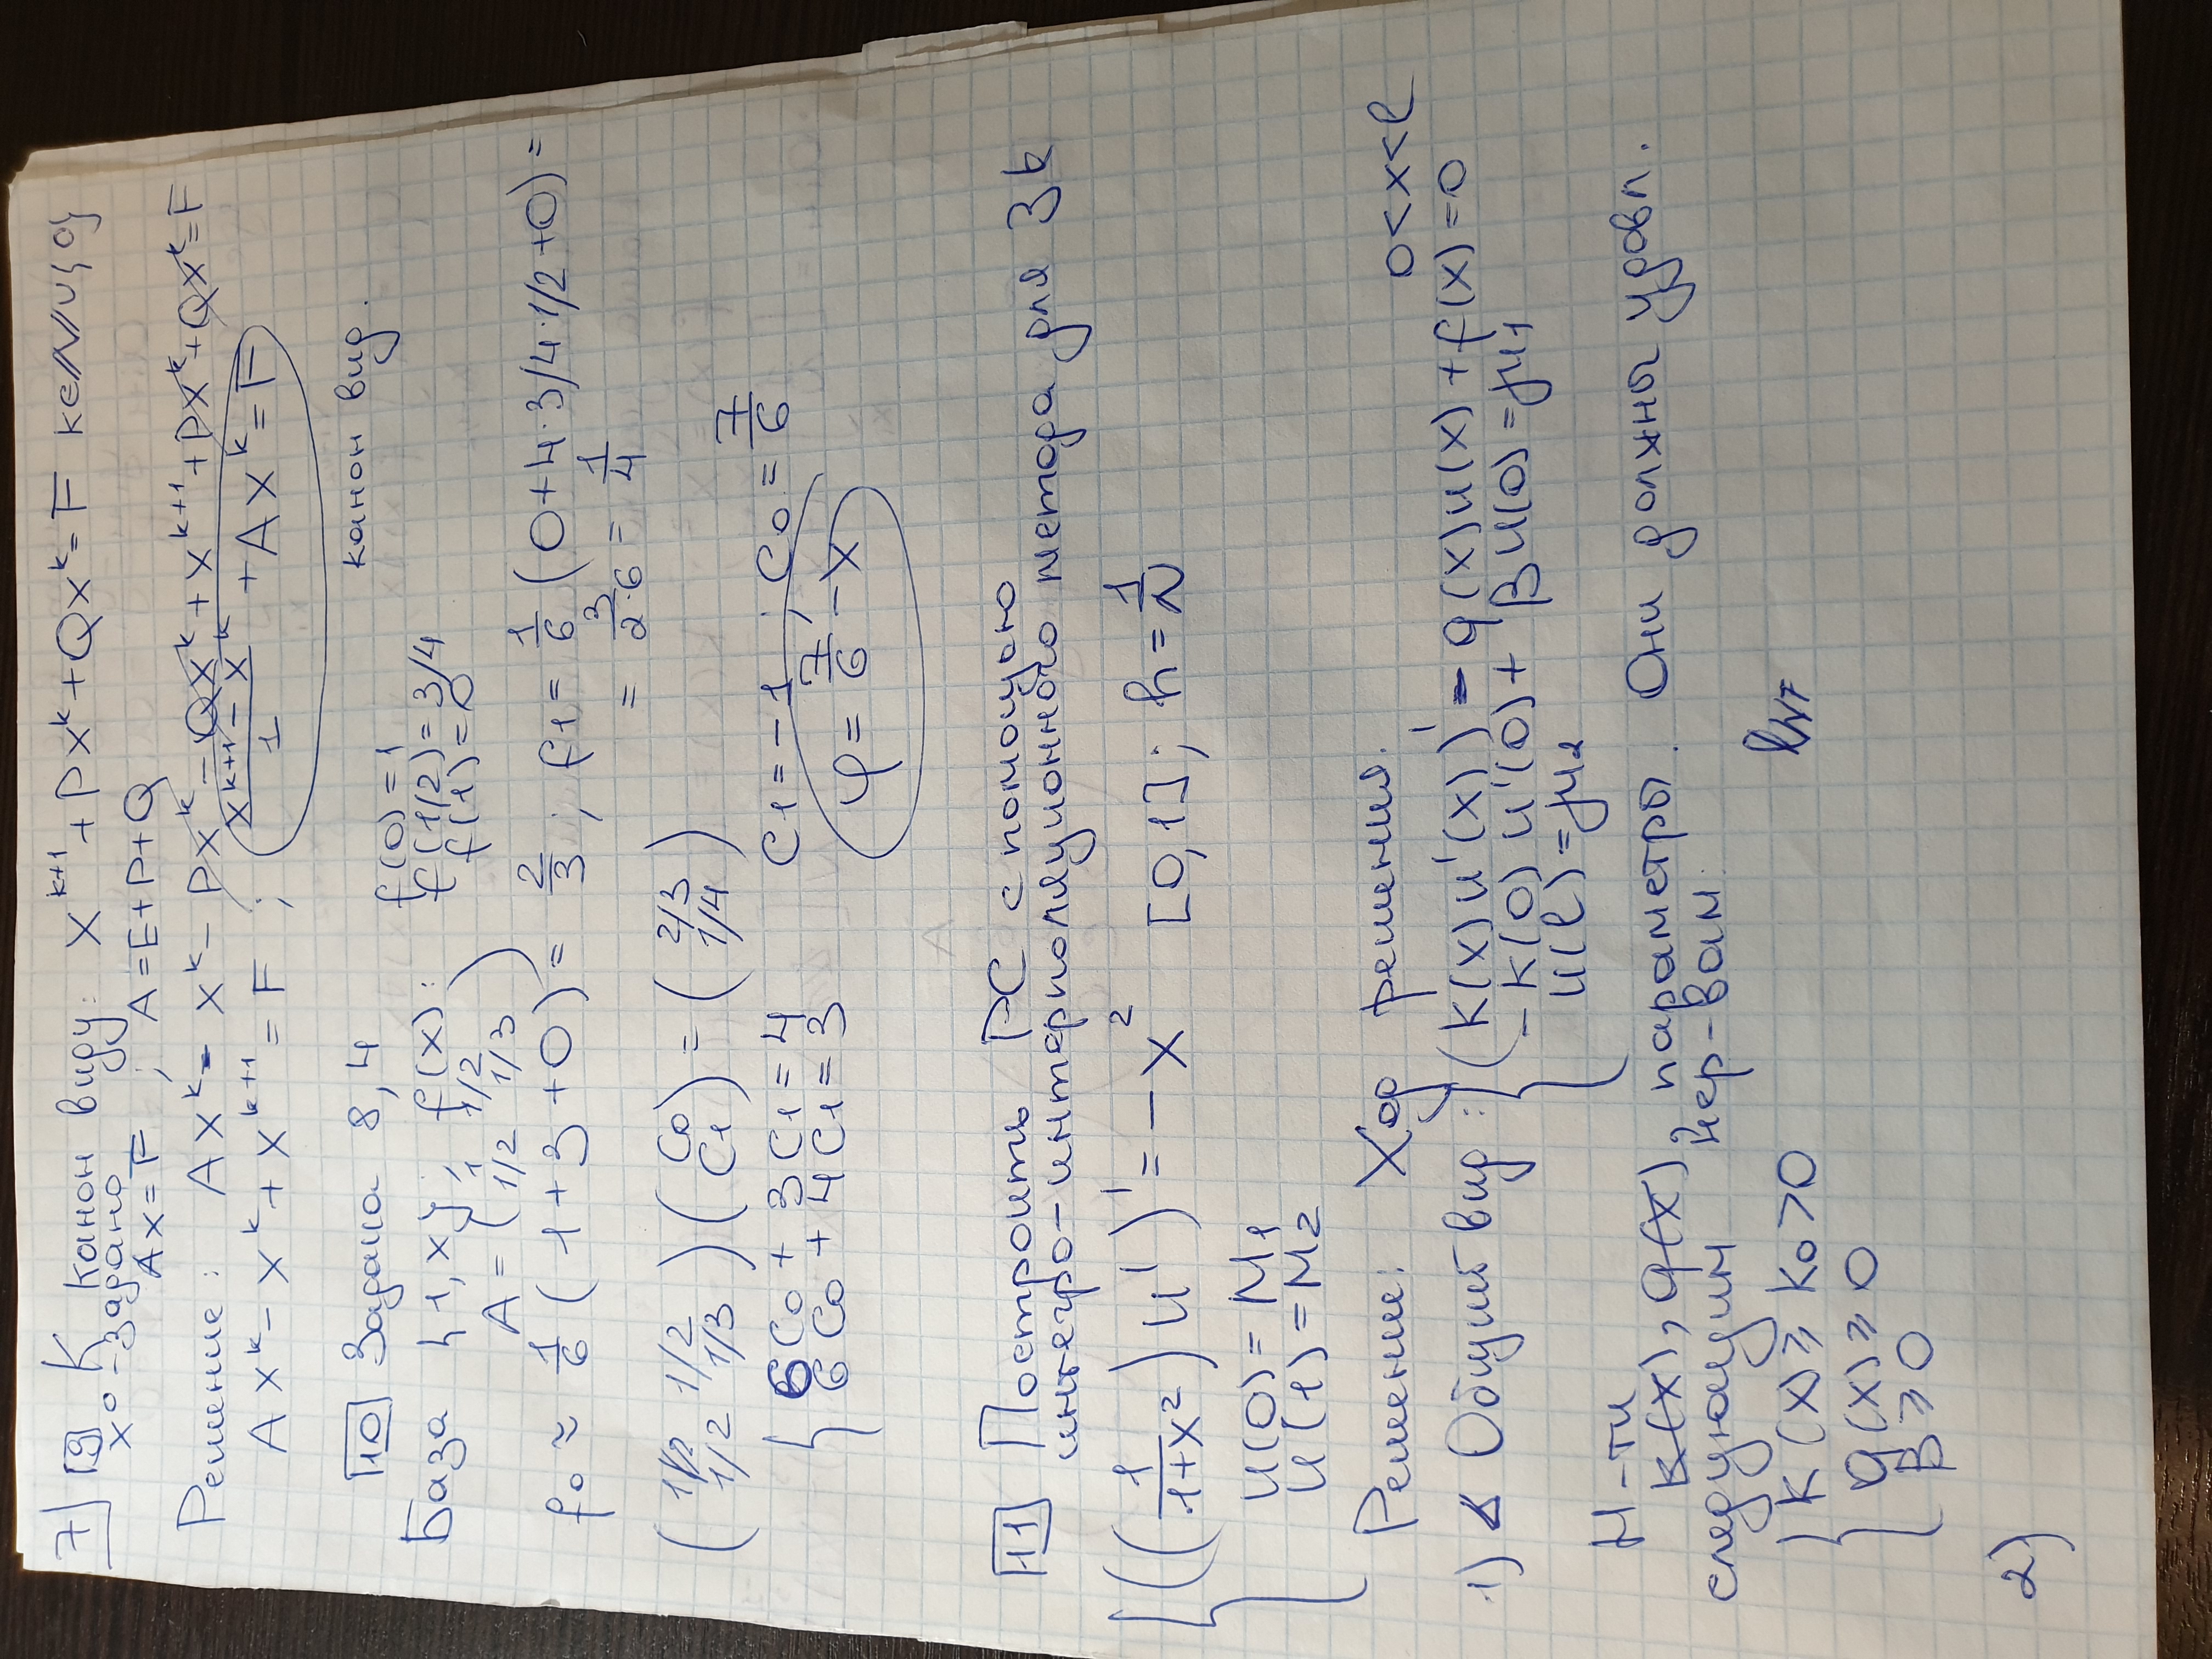 7] [9] К канон виду: x^{k+1} + Px^k + Qx^k = F k∈N∪{0}
x⁰ - задано
Ax = F ; A = E + P + Q
Решение: Ax^k - x^k - Px^k - Qx^k + x^{k+1} + Px^k + Qx^k = F
Ax^k - x^k + x^{k+1} = F ; (x^{k+1} - x^k)/1 + Ax^k = F
канон вид.
[10] Задача 8,4
База {1, x}; f(x): f(0) = 1
f(1/2) = 3/4
f(1) = 0
A = (1 1/2
1/2 1/3)
f₀ ≈ 1/6 (1 + 3 + 0) = 2/3 ; f₁ = 1/6 (0 + 4·3/4·1/2 + 0) =
= 3/2·6 = 1/4
(1 1/2
1/2 1/3) (C₀
C₁) = (2/3
1/4)
{ 6C₀ + 3C₁ = 4
6C₀ + 4C₁ = 3
C₁ = -1 ; C₀ = 7/6
φ = 7/6 - x
[11] Построить РС с помощью
интегро-интерполяционного метода для ЗК
{ ((1/(1+x²)) u')' = -x² [0,1]; h = 1/N
u(0) = M₁
u(1) = M₂
Решение: Ход решения.
1) Общий вид: { (k(x)u'(x))' - q(x)u(x) + f(x) = 0 0<x<l
-k(0)u'(0) + βu(0) = μ₁
u(l) = μ₂
k(x), q(x) параметры. Они должны удовл.
следующим нер-вам
{ k(x) ≥ k₀ > 0
q(x) ≥ 0
β ≥ 0
2)